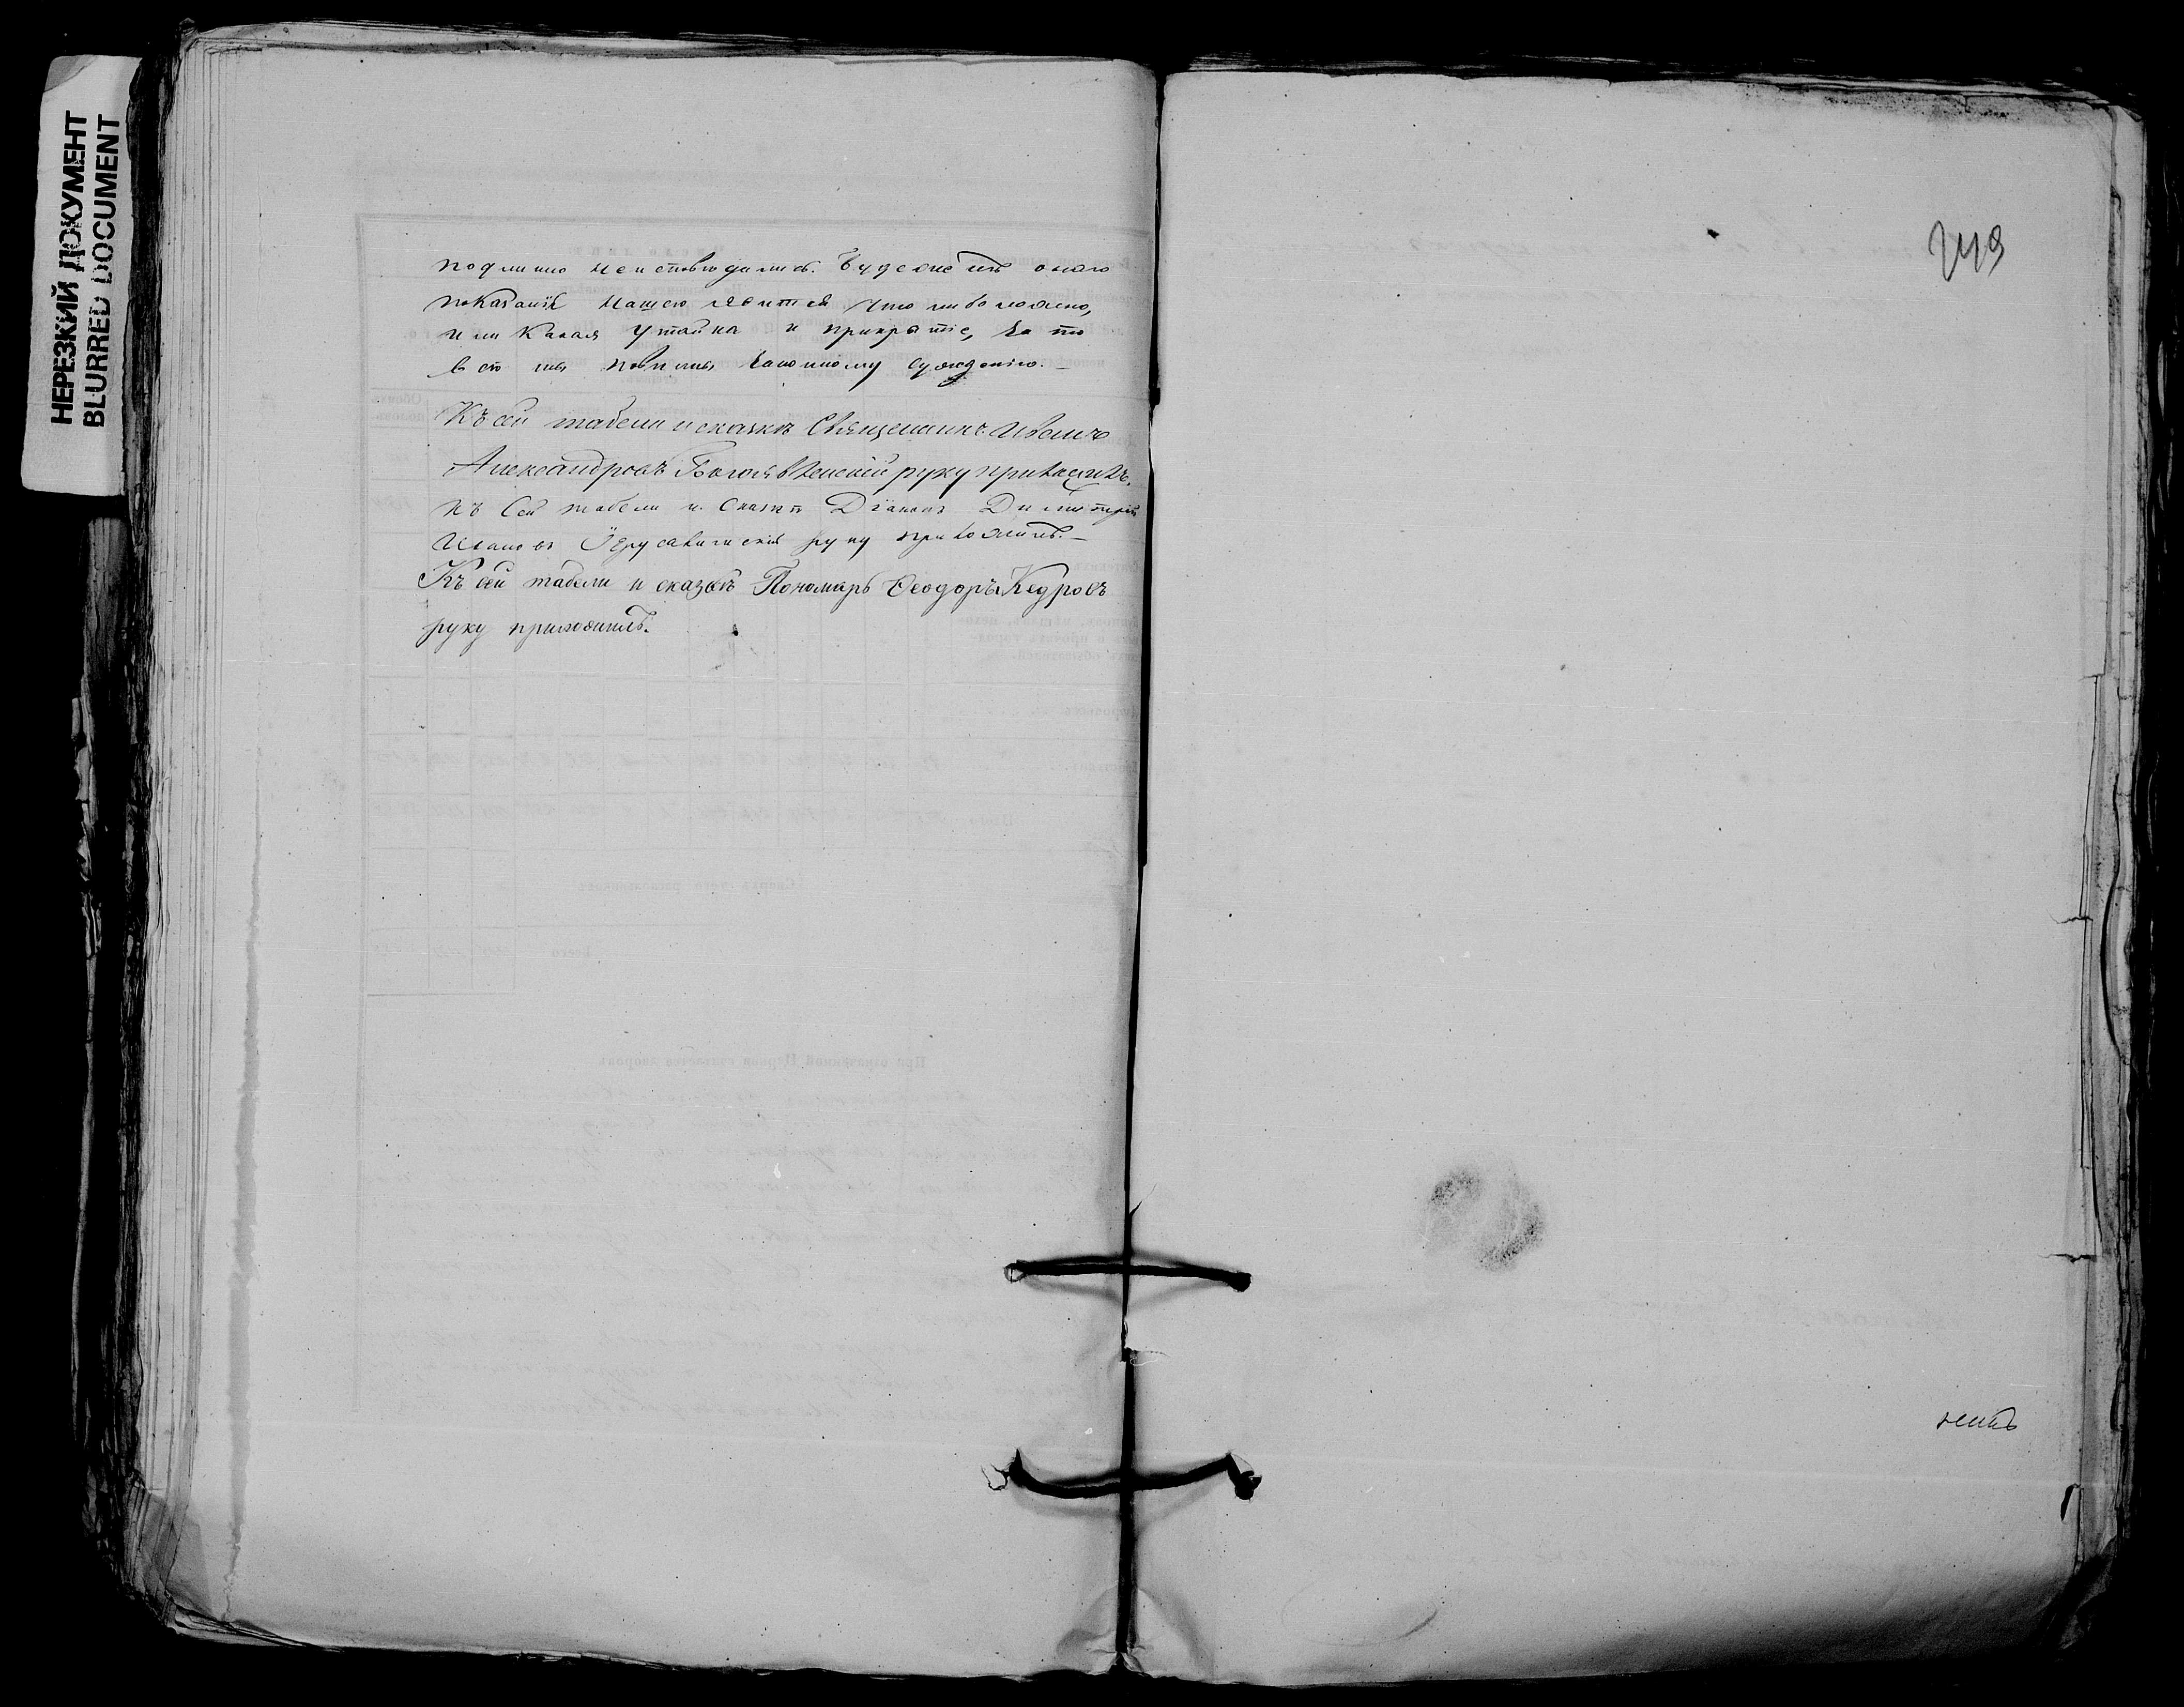 НЕРЕЗКИЙ ДОКУМЕНТ
BLURRED DOCUMENT
подлинно неисповѣдались. Будеже въ ономъ
показаніи нашемъ явится что либо ложно,
или какая утайка и прикрытіе, за то
всѣ мы повинны законному сужденію. —
Къ сей табели и сказкѣ Священникъ Иванъ
Александровъ Богоявленскій руку приложилъ.
Къ сей табели и сказкѣ Діаконъ Димитрій
Ивановъ Іерусалимскій руку приложилъ. —
Къ сей табели и сказкѣ Пономарь Ѳеодоръ Кедровъ
руку приложилъ.
249